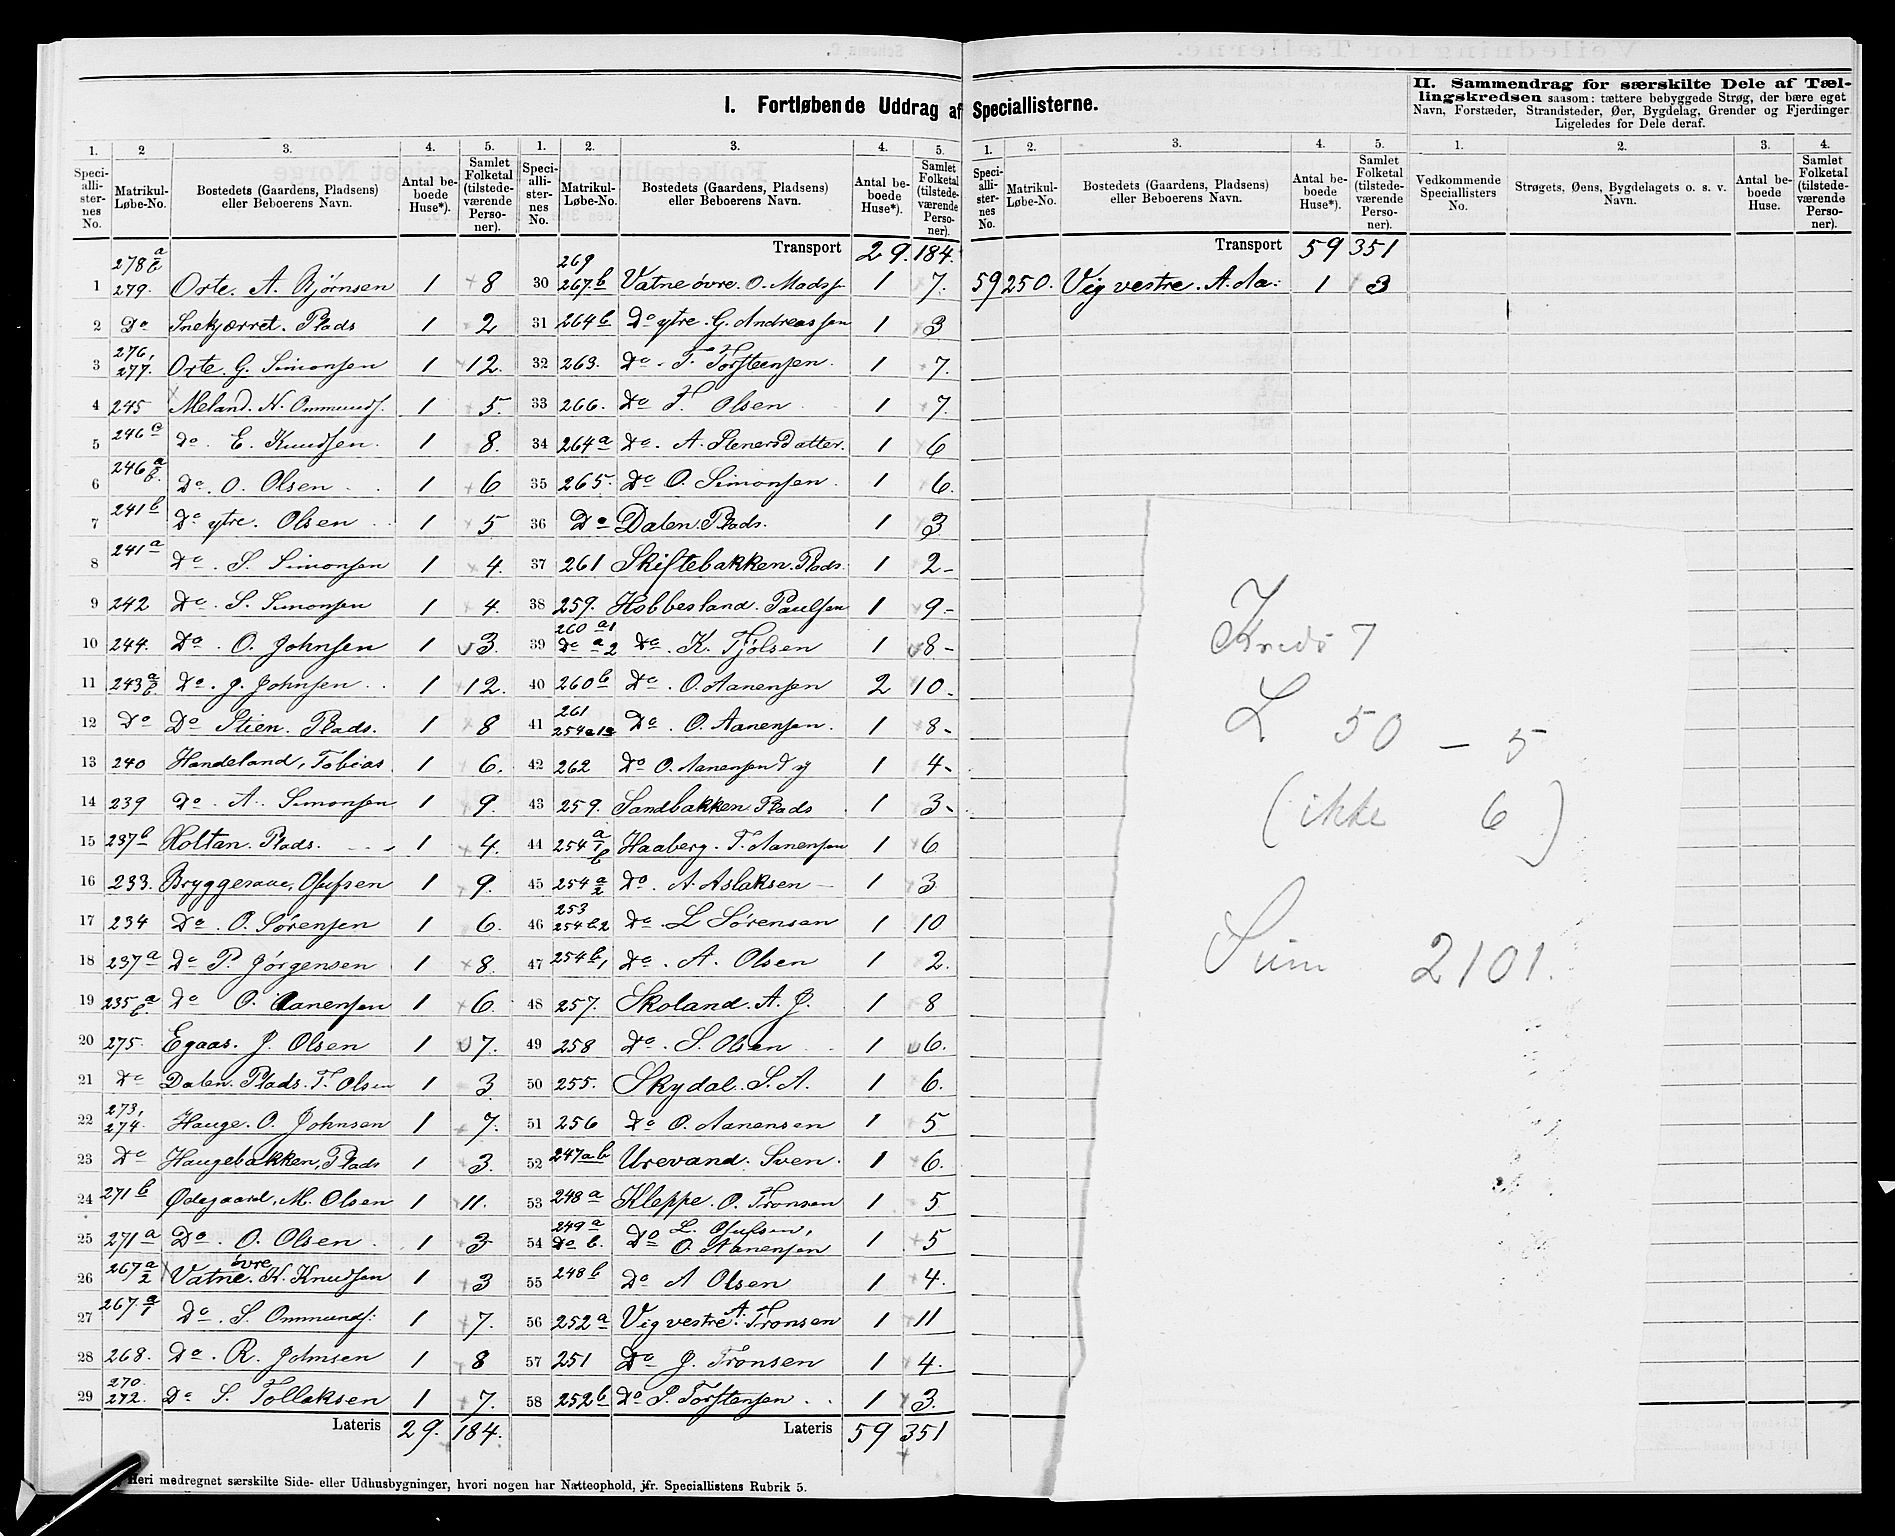 I. Fortløbende Uddrag af Speciallisterne.
1. 2 3. 4. 5.
Speciallisternes No. Matrikul-Løbe-No. Bostedets (Gaardens, Pladsens) eller Beboerens Navn. Antal beboede Huse*). Samlet Folketal (tilstedeværende Personer).
278 a b
1 279. Orte. A. Bjørnsen 1 8
2 Do Snekjærret. Plads 1 2
276,
3 277. Orte. G. Simonsen 1 12.
4 245 Meland. N. Ommunds. 1 5.
5 246 c do. E. Knudsen. 1 8.
6 246 a b. Do. O. Olsen 1 6
7 241 b Do ytre. Olsen 1 5
8 241 a Do. S. Simonsen 1 4.
9 242 Do. S. Simonsen 1 4.
10 244. Do. O. Johnsen 1 3.
11 243 a b Do. J. Johnsen 1 12.
12 Do Do Stien. Plads. 1 8
13 240 Handeland, Tobias 1 6.
14 239 Do. A. Simonsen 1 9.
15 237 b Holtan. Plads. 1 4.
16 233. Bryggesaae, Olufsen 1 9.
17 234 Do. O. Sørensen 1 6.
18 237 a Do P. Jørgensen 1 8.
19 235 a b Do O. Aanensen 1 6.
20 275. Egaas. J. Olsen 1 7.
21 Do Dalen. Plads. T. Olsen 1 3
273,
22 274. Hauge. O. Johnsen 1 7.
23 Do Haugebakken, Plads 1 3.
24 271 b Ødegaard, M. Olsen 1 11.
25 271 a Do. O. Olsen 1 3
26 267 a 2 Vatne øvre. K. Knudsen 1 3
27 267. a 1 Do. S. Ommunds: 1 7.
28 268. Do. R. Johnsen 1 8
270.
29 272. Do S. Tollaksen 1 7.
Lateris 29. 184.
1. 2. 3. 4. 5.
Speciallisternes No. Matrikul-Løbe-No. Bostedets (Gaardens, Pladsens) eller Beboerens Navn. Antal beboede Huse*). Samlet Folketal (tilstedeværende Personer).
Transport 29. 184.
269
30 267. b Vatne øvre. O. Mads. 1 7.
31 264 b Do ytre. G. Andreassen 1 3
32 263. Do. T. Torsteensen. 1 7.
33 266. Do T. Olsen 1 7.
34 264 a Do. A. Stenersdatter. 1 6
35 265. Do O. Simonsen. 1 6.
36 Do Dalen. Plads. 1 3
37 261 Skiftebakken. Plads. 1 2-
38 259. Hobbesland. Paulsen 1 9-
260 a1
39 Do a 2 Do. K. Tjølsen 1 8-
40 260 b Do. O. Aanensen 2 10-
261
41 254 a 1 Do. O. Aanensen. 1 8-
42 262 Do O. Aanensen d y 1 4-
43 259. Sandbakken Plads 1 3-
44 254 a 1 b Haaberg. T. Aanensen 1 6
45 254 a 2 Do. A. Aslaksen 1 3
253
46 254 b 2 Do. L Sørensen 1 10
47 254 b, Do. A. Olsen 1 2.
48 257. Skoland. A. J. 1 8
49 258 Do. S. Olsen 1 6.
50 255. Skydal. S. A. 1 6.
51 256 Do O. Aanensen 1 5
52 247 a b Urevand. Sven. 1 6.
53 248 a Kleppe. O. Tronsen 1 5
249 a L. Olufsen,
54 Do b. Do O. Aanensen 1 5
55 248 b Do A Olsen 1 4.
56 252 a Vig vestre. A. Tronsen 1 11
57 251 Do J. Tronsen 1 4.
58 252 b Do P. Torstensen 1 3.
Lateris 59 351
Heri medregnet særskilte Side- eller Udhusbygninger, hvori nogen har Natteophold, jfr. Speciallistens Rubrik 5.
1. 2. 3. 4. 5.
Speciallisternes No. Matrikul-Løbe-No. Bostedets (Gaardens, Pladsens) eller Beboerens Navn. Antal beboede Huse*). Samlet Folketal (tilstedeværende Personer).
Transport 59 351
59 250. Vig vestre. A. Aa: 1 3
II. Sammendrag for særskilte Dele af Tællingskredsen saasom: tættere bebyggede Strøg, der bære eget Navn, Forstæder, Strandsteder, Øer, Bygdelag, Grender og Fjerdinger Ligeledes for Dele deraf.
1. 2. 3. 4.
Vedkommende Speciallisters No. Strøgets, Øens, Bygdelagets o. s. v. Navn. Antal beboede Huse. Samlet Folketal (tilstedeværende Personer).
Kreds 7
L 50 - 5
(ikke 6)
Sum 2101.